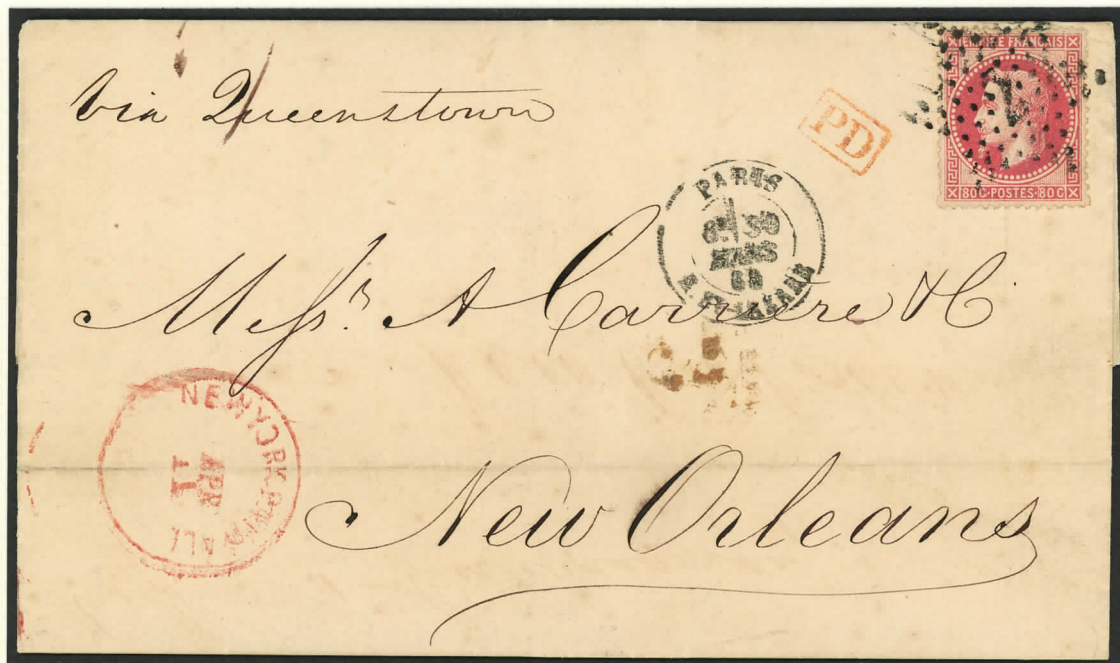 via Queenstown
EMPIRE FRANÇAIS
80C·POSTES·80C
PD
PARIS
30
MARS
Messrs. A Carriere & C
NEW YORK
PAID ALL
APR
11
New Orleans